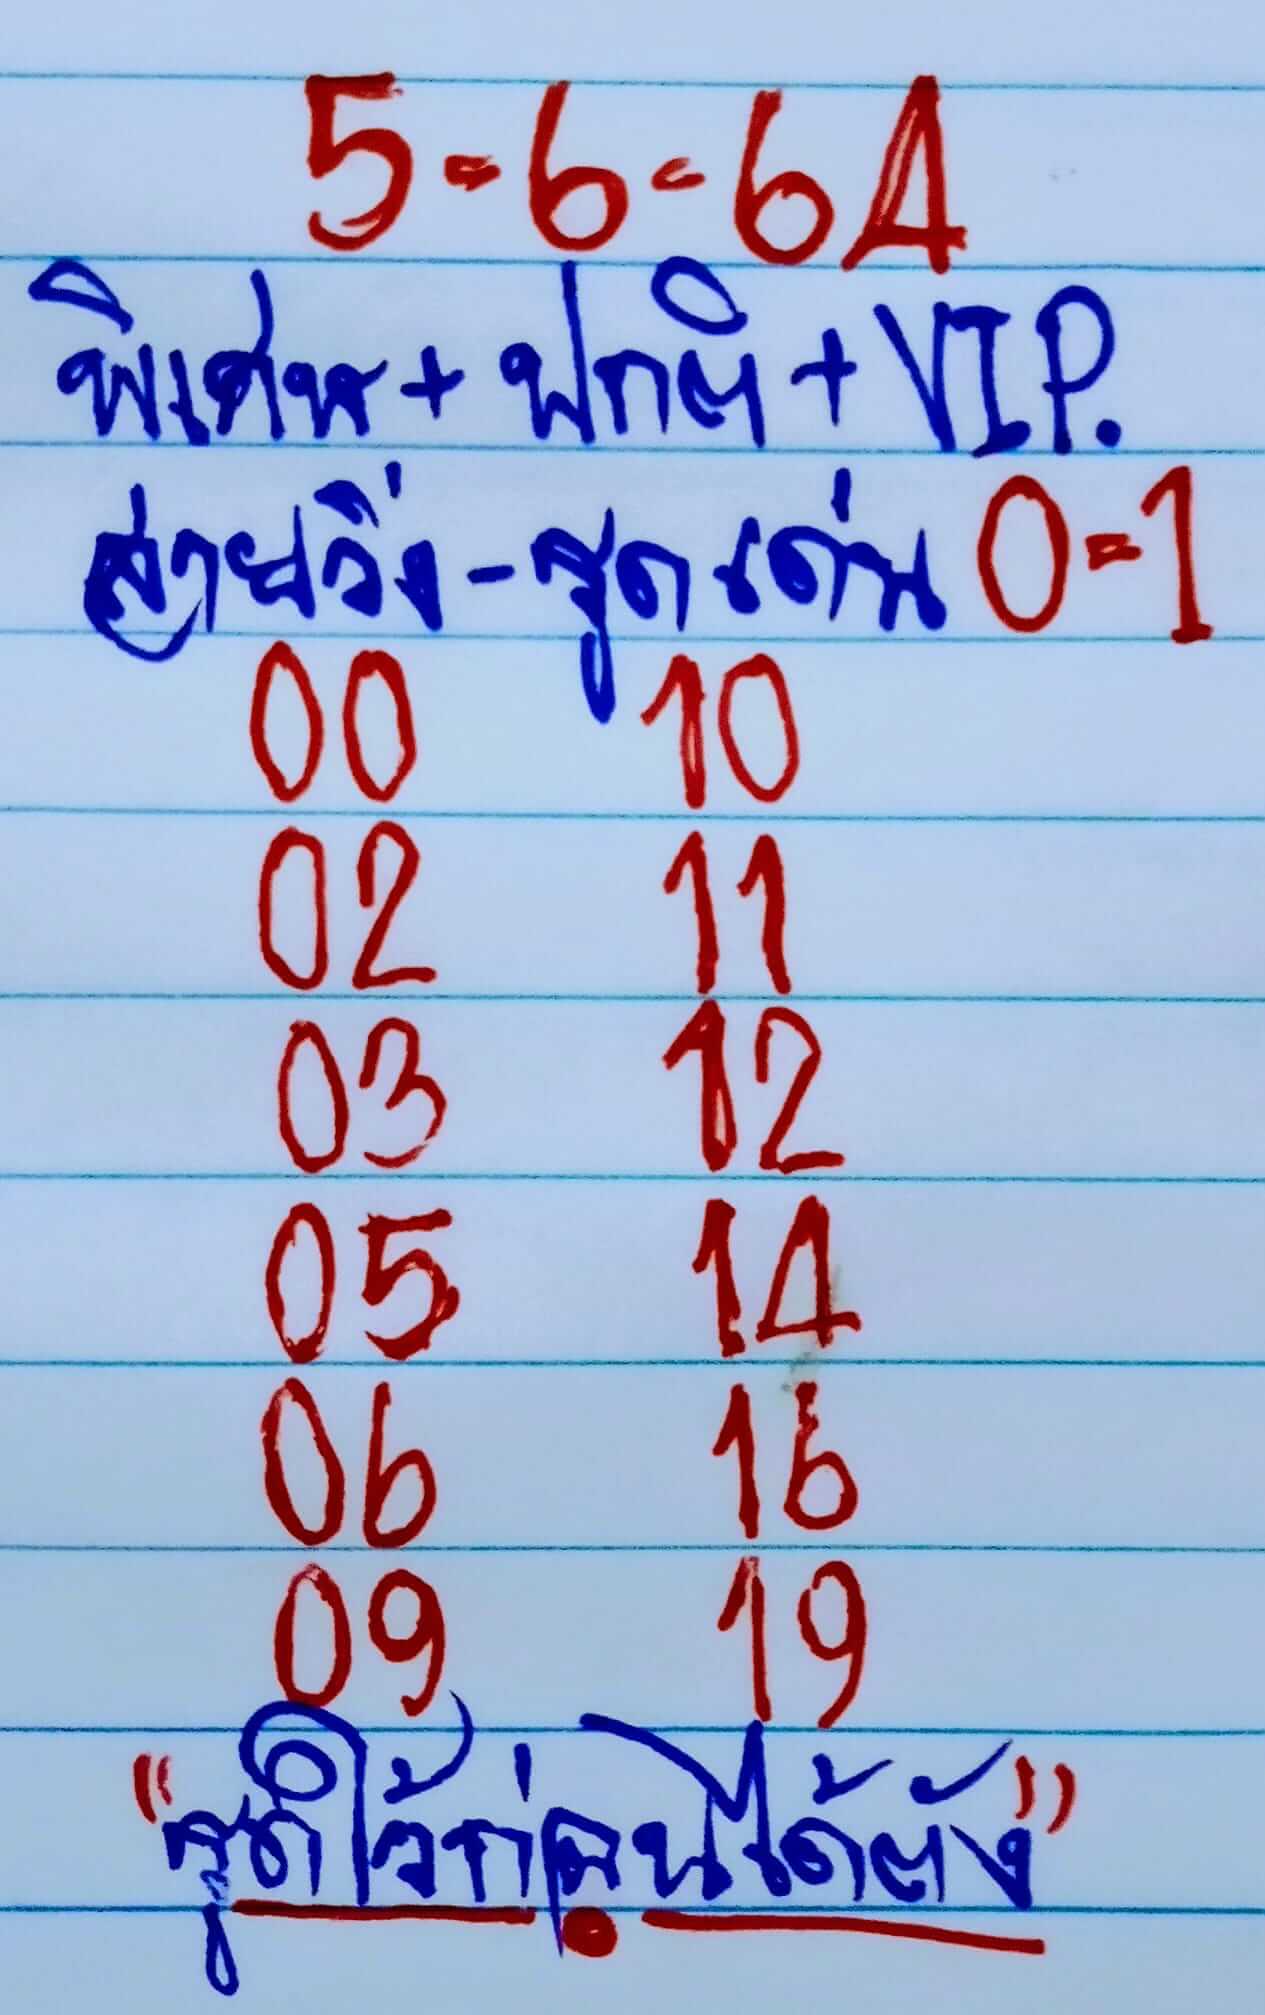 5-6-64
พิเศษ+ปกติ+VIP.
สายวิ่ง-รูดเด่น 0-1
00 10
02 11
03 12
05 14
06 16
09 19
"รูดไว้ก่อนได้ตัง"